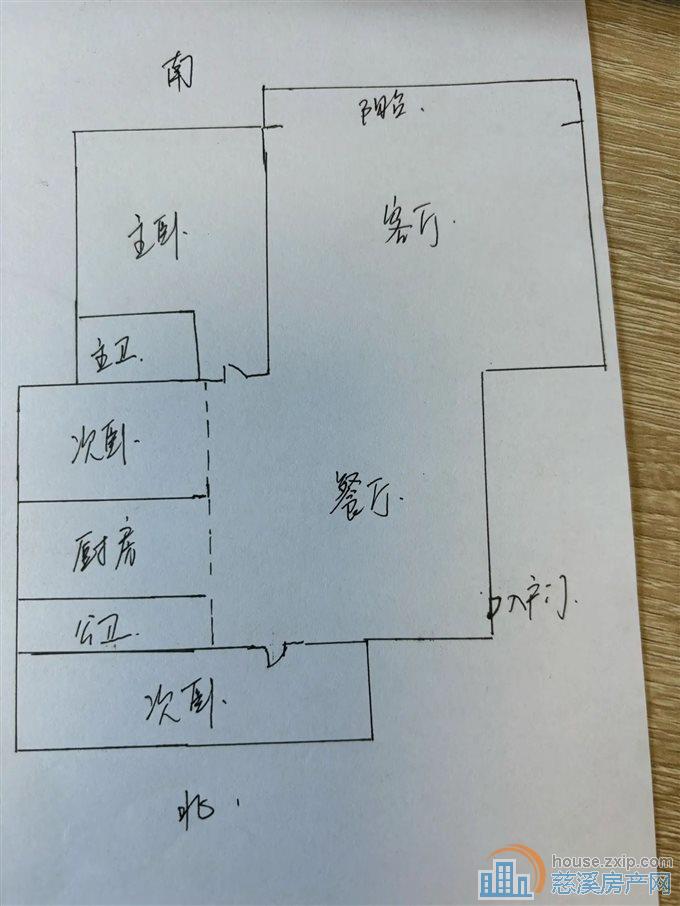 南
阳台.
主卧.
客厅.
主卫.
次卧.
餐厅.
厨房
公卫.
入户门.
次卧.
北.
house.zxip.com
慈溪房产网